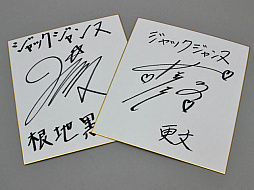 ジャックジャンヌ
根地黒
ジャックジャンヌ
更文